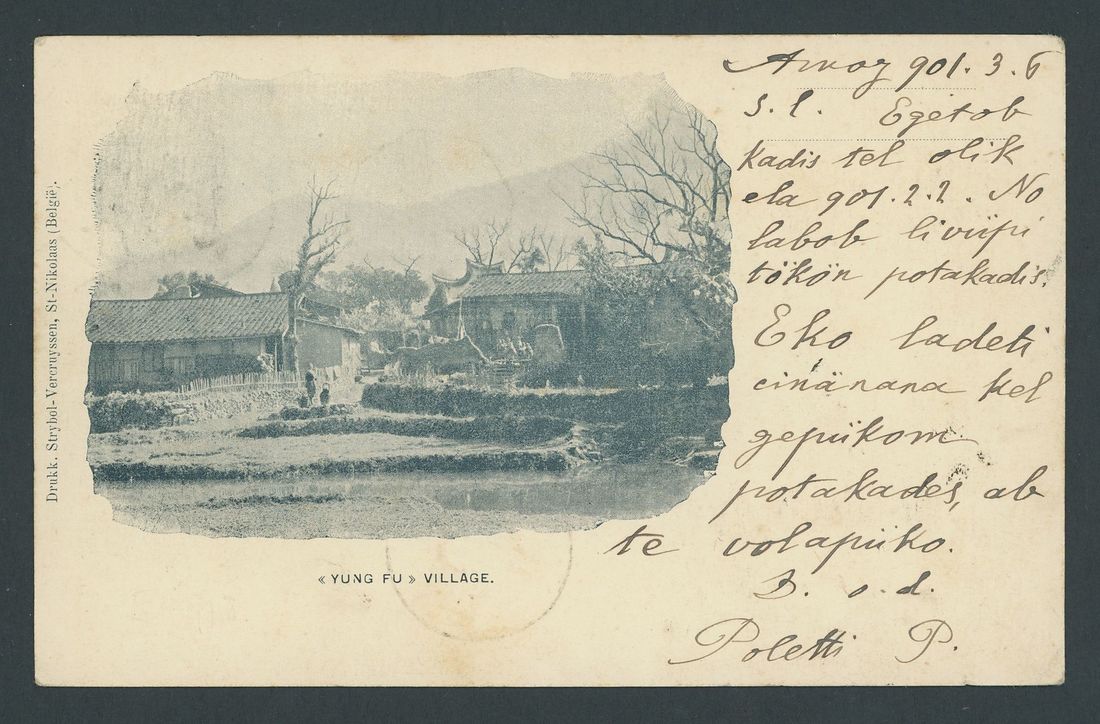 Amoy 901.3.6
S.l. Egetob
kadis tel olik
ela 901.2.2. No
labob livüpi
tökön potakadis.
Eko ladeti
cinänana kel
gepükom
potakades, ab
te volapüko.
D. o. d.
Poletti P.
« YUNG FU » VILLAGE.
Drukk. Strybol-Vercruyssen, St-Nikolaas (België).